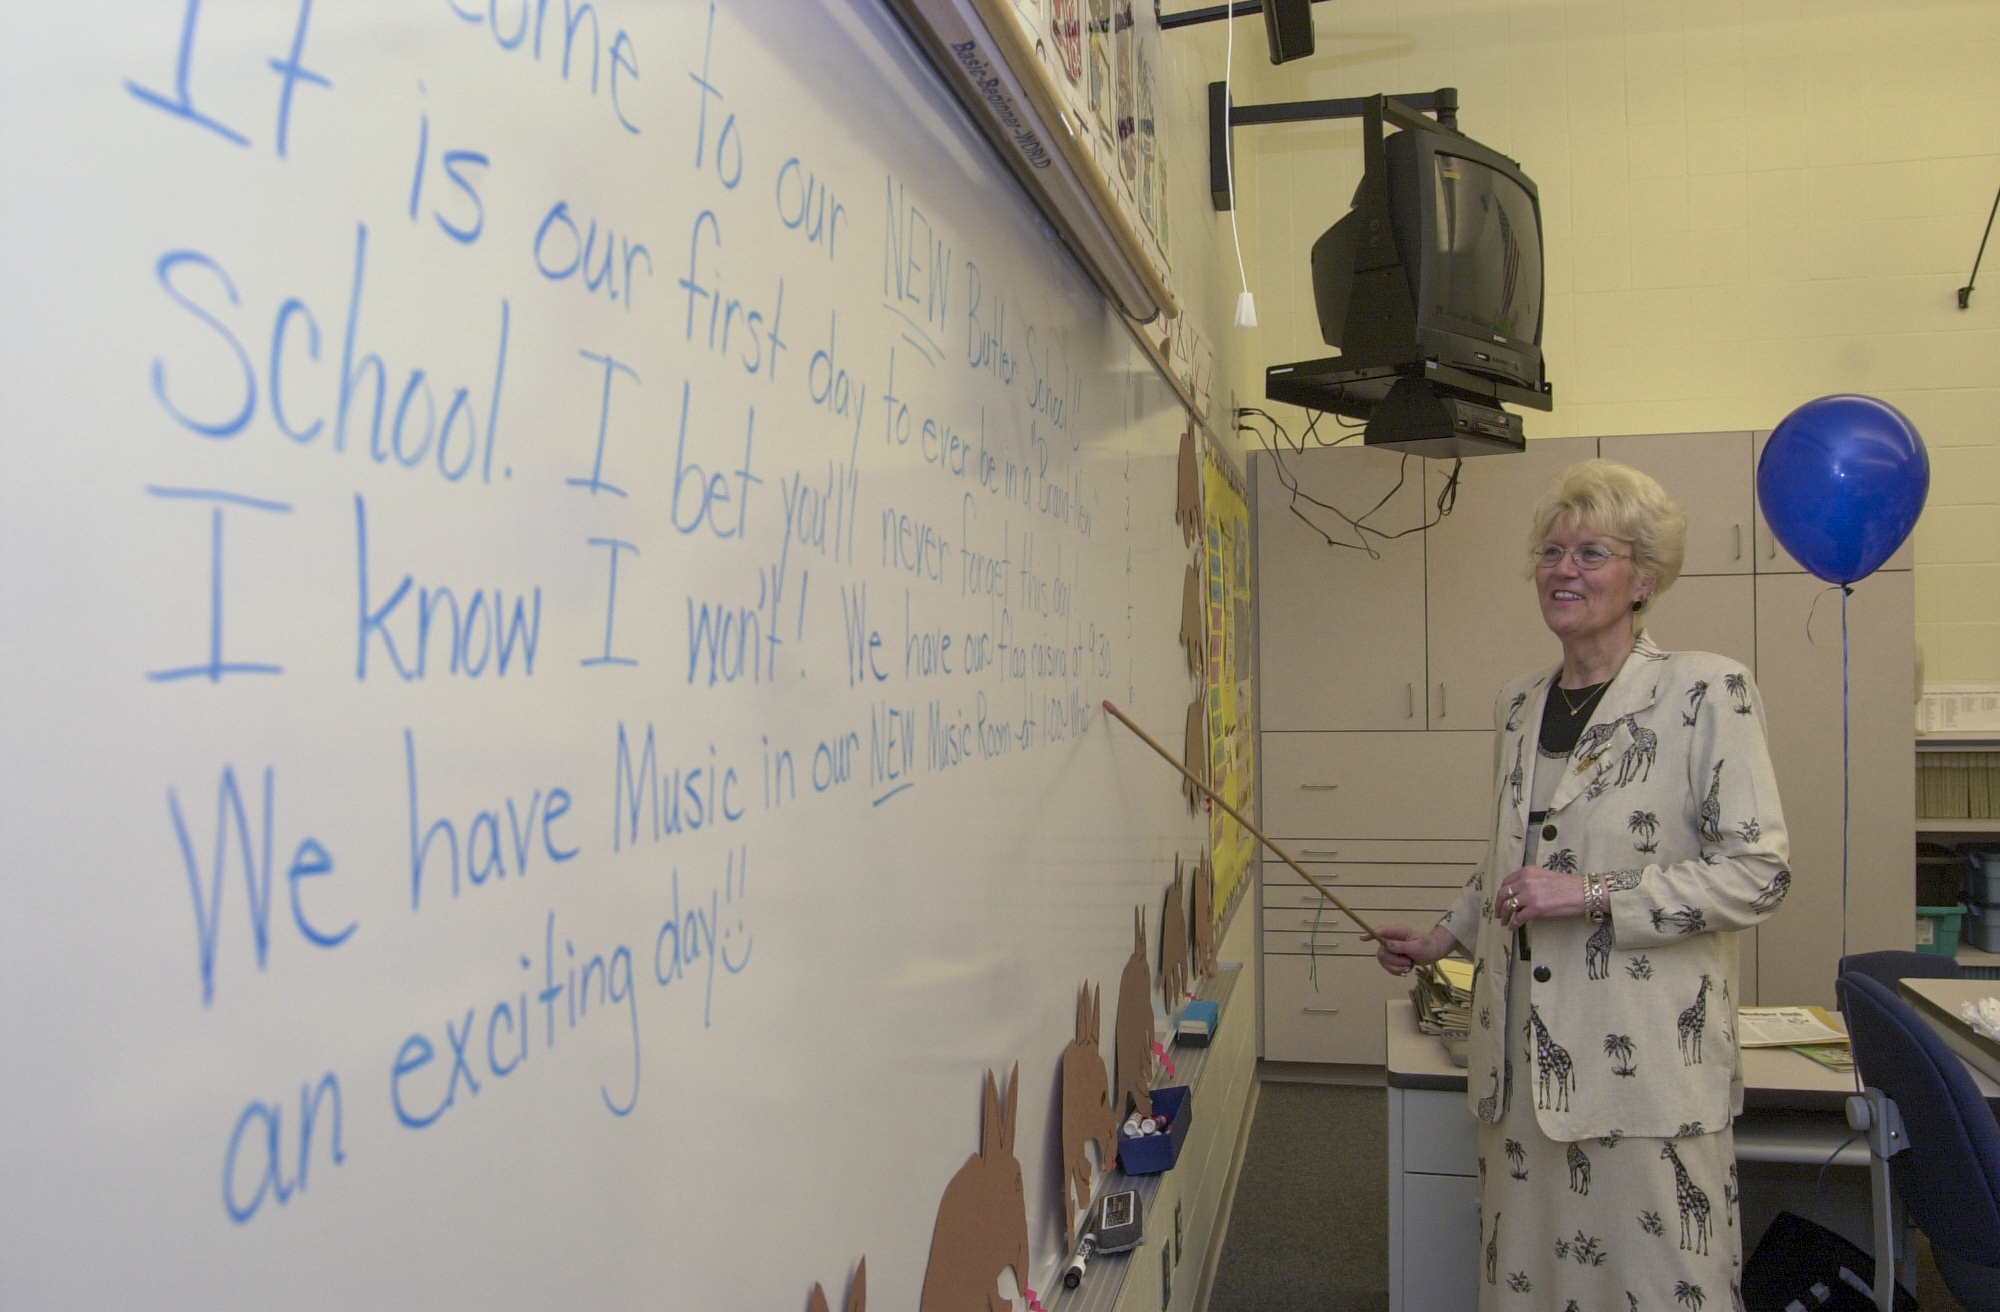 come to our NEW Butler School!!
It is our first day to ever be in a "Brand-New"
School. I bet you'll never forget this day!
I know I won't! We have our flag raising at 9:30
We have Music in our NEW Music Room at 1:00. What
an exciting day!!
Basic-Beginner-WORLD
1
2
3
4
5
6